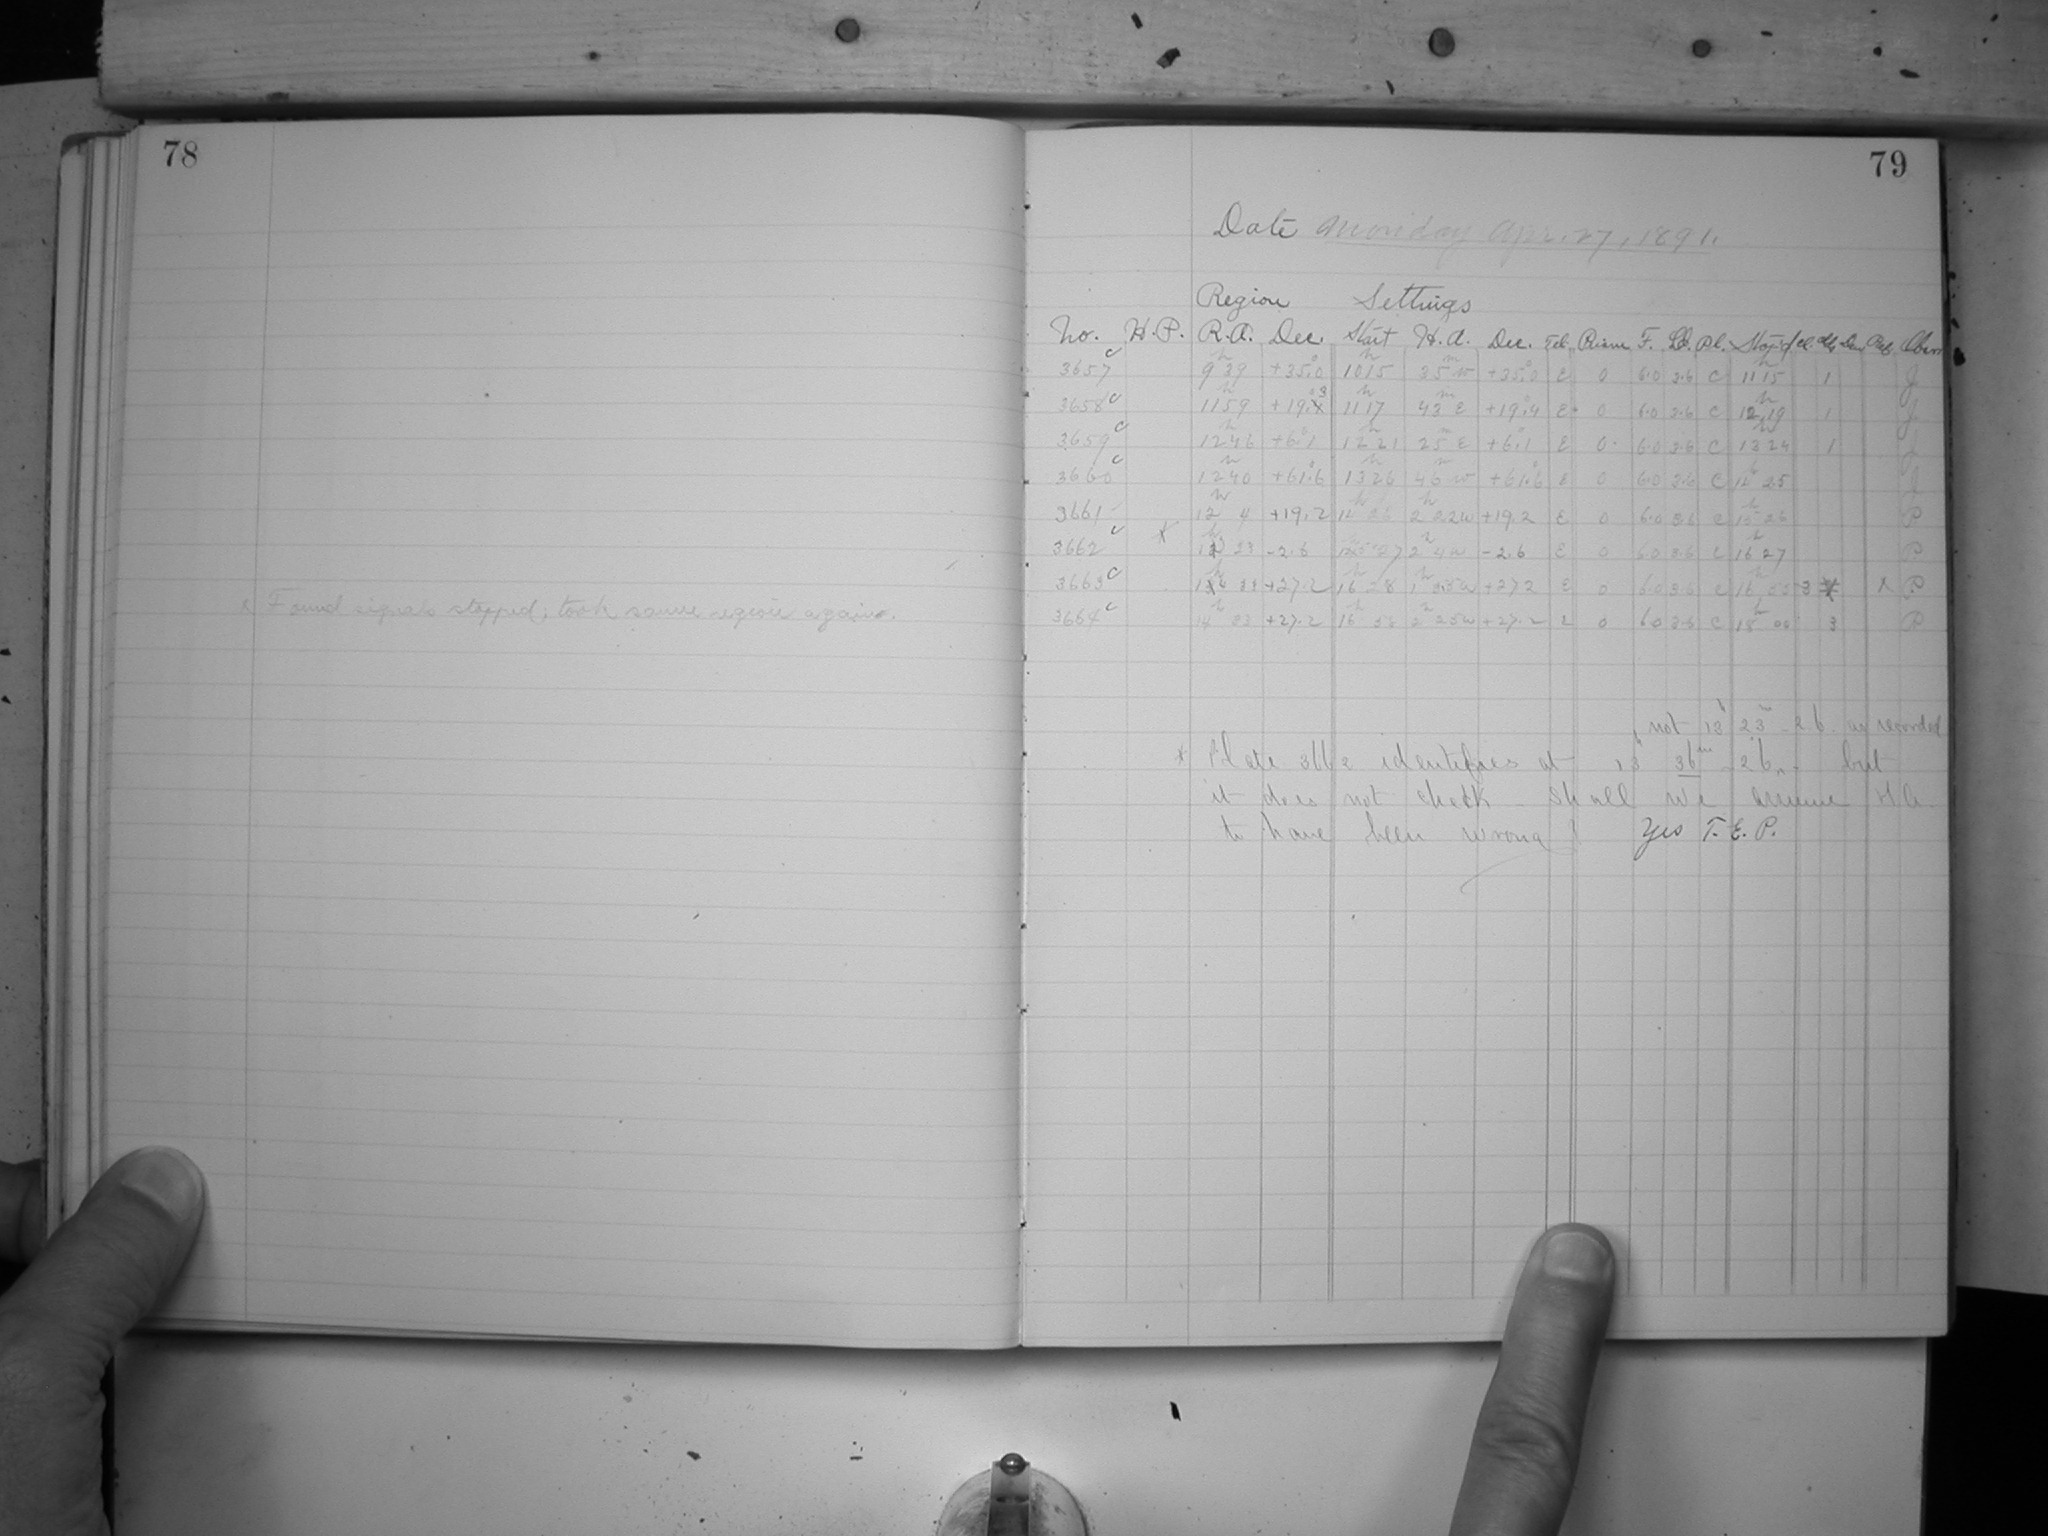 78
x Found signals stopped; took same region again.
79
Date Monday Apr. 27, 1891.
Region Settings
No. H.P. R.A. Dec. Start H.A. Dec. Tel. Prism F. Pl. Stop'd Cl. Obser
3657 c 9 39 +35.0 10 15 35 w +35.0 E 0 6.0 3.6 C 11 15 1 J
3658 c 11 59 +19.3 11 17 43 E +19.4 E 0 6.0 3.6 C 12 19 1 J
3659 c 12 46 +6.1 12 21 25 E +6.1 E 0 6.0 3.6 C 13 24 1 J
3660 c 12 40 +61.6 13 26 46 w +61.6 E 0 6.0 3.6 C 14 25 J
3661 12 4 +19.2 14 26 2 22w +19.2 E 0 6.0 3.6 C 15 26 P
3662 c * 13 23 -2.6 15 27 2 4w -2.6 E 0 6.0 3.6 C 16 27 P
3663 c 14 33 +27.2 16 28 1 55w +27.2 E 0 6.0 3.6 C 16 55 3 x P
3664 c 14 33 +27.2 16 58 2 25w +27.2 E 0 6.0 3.6 C 18 00 3 P
not 13h 23m -2.6. as recorded
* Plate 3662 identifies at 13h 36m -2.6, - but
it does not check - Shall we assume H.A.
to have been wrong? Yes T.E.P.